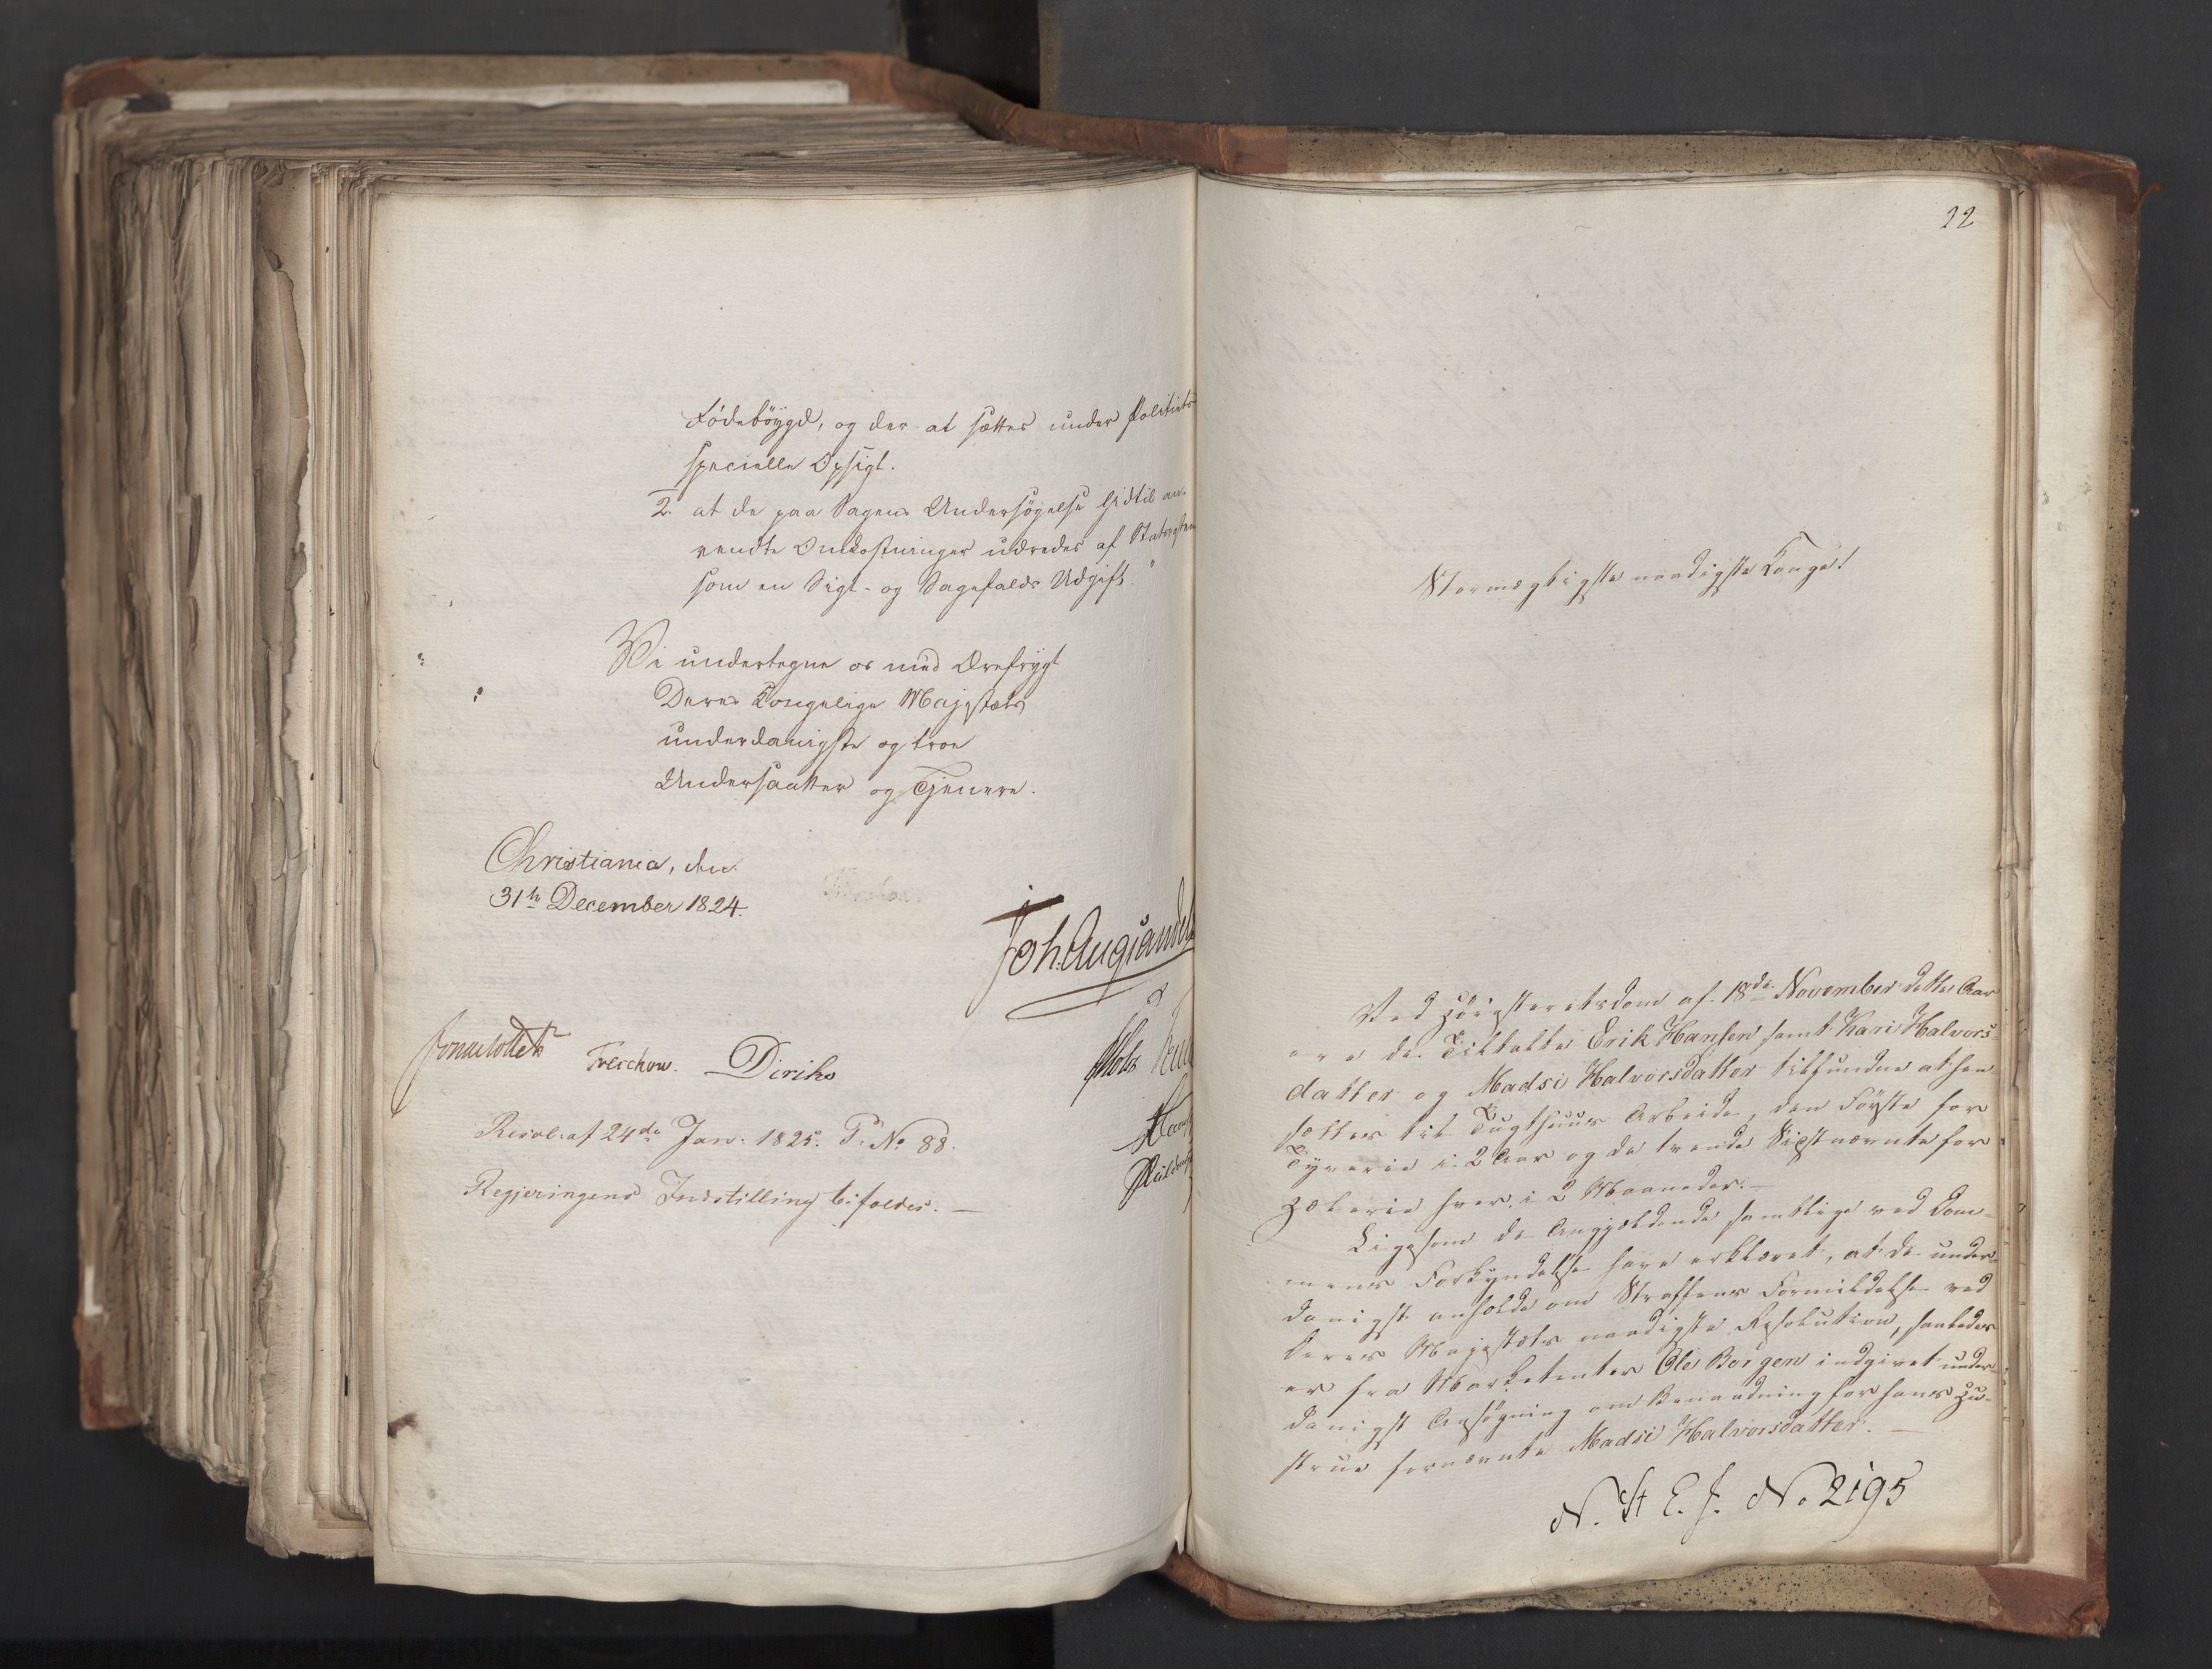 Födeböygd, og der at sættes under Politiets
specielle Opsigt.
2. at de paa Sagens Undersøgelse hidtil an-
vendte Omkostninger udredes af Statscassen
som en Sigt- og Sagefalds Udgift."
Vi undertegne os med Ærefrygt
Deres Kongelige Majestæts
underdanigste og troe
Undersaatter og Tjenere.
Christiania, den
31te December 1824.
Joh. Aug. Sandels
Sommelbell Treschow. Diriks
Motz
Resol: af 24de Jan: 1825. P. No 88.
Regjeringens Indstilling bifaldes. —
22
Stormægtigste naadigste Konge!
Ved Höiesteretsdom af 18de November dette Aar
ere de Tiltalte Erik Hansen samt Kari Halvors-
datter og Madsi Halvorsdatter tilfundne at hen-
sættes til Tugthuus Arbeide, den Förste for
Tyverie i 2 Aar og de tvende Sidstnævnte for
Hæleri hver i 2 Maaneder. —
Ligesom de Angjældende samtlige ved Dom-
mens Forkyndelse have erklæret, at de under-
danigst anholde om Straffens Formildelse ved
Deres Majestæts naadigste Resolution, saaledes
er fra Marketenter Ole Borgen indgivet under-
danigst Ansøgning om Benaadning for hans Hu-
strue fornævnte Madsi Halvorsdatter. —
N. St E. J. No 2195